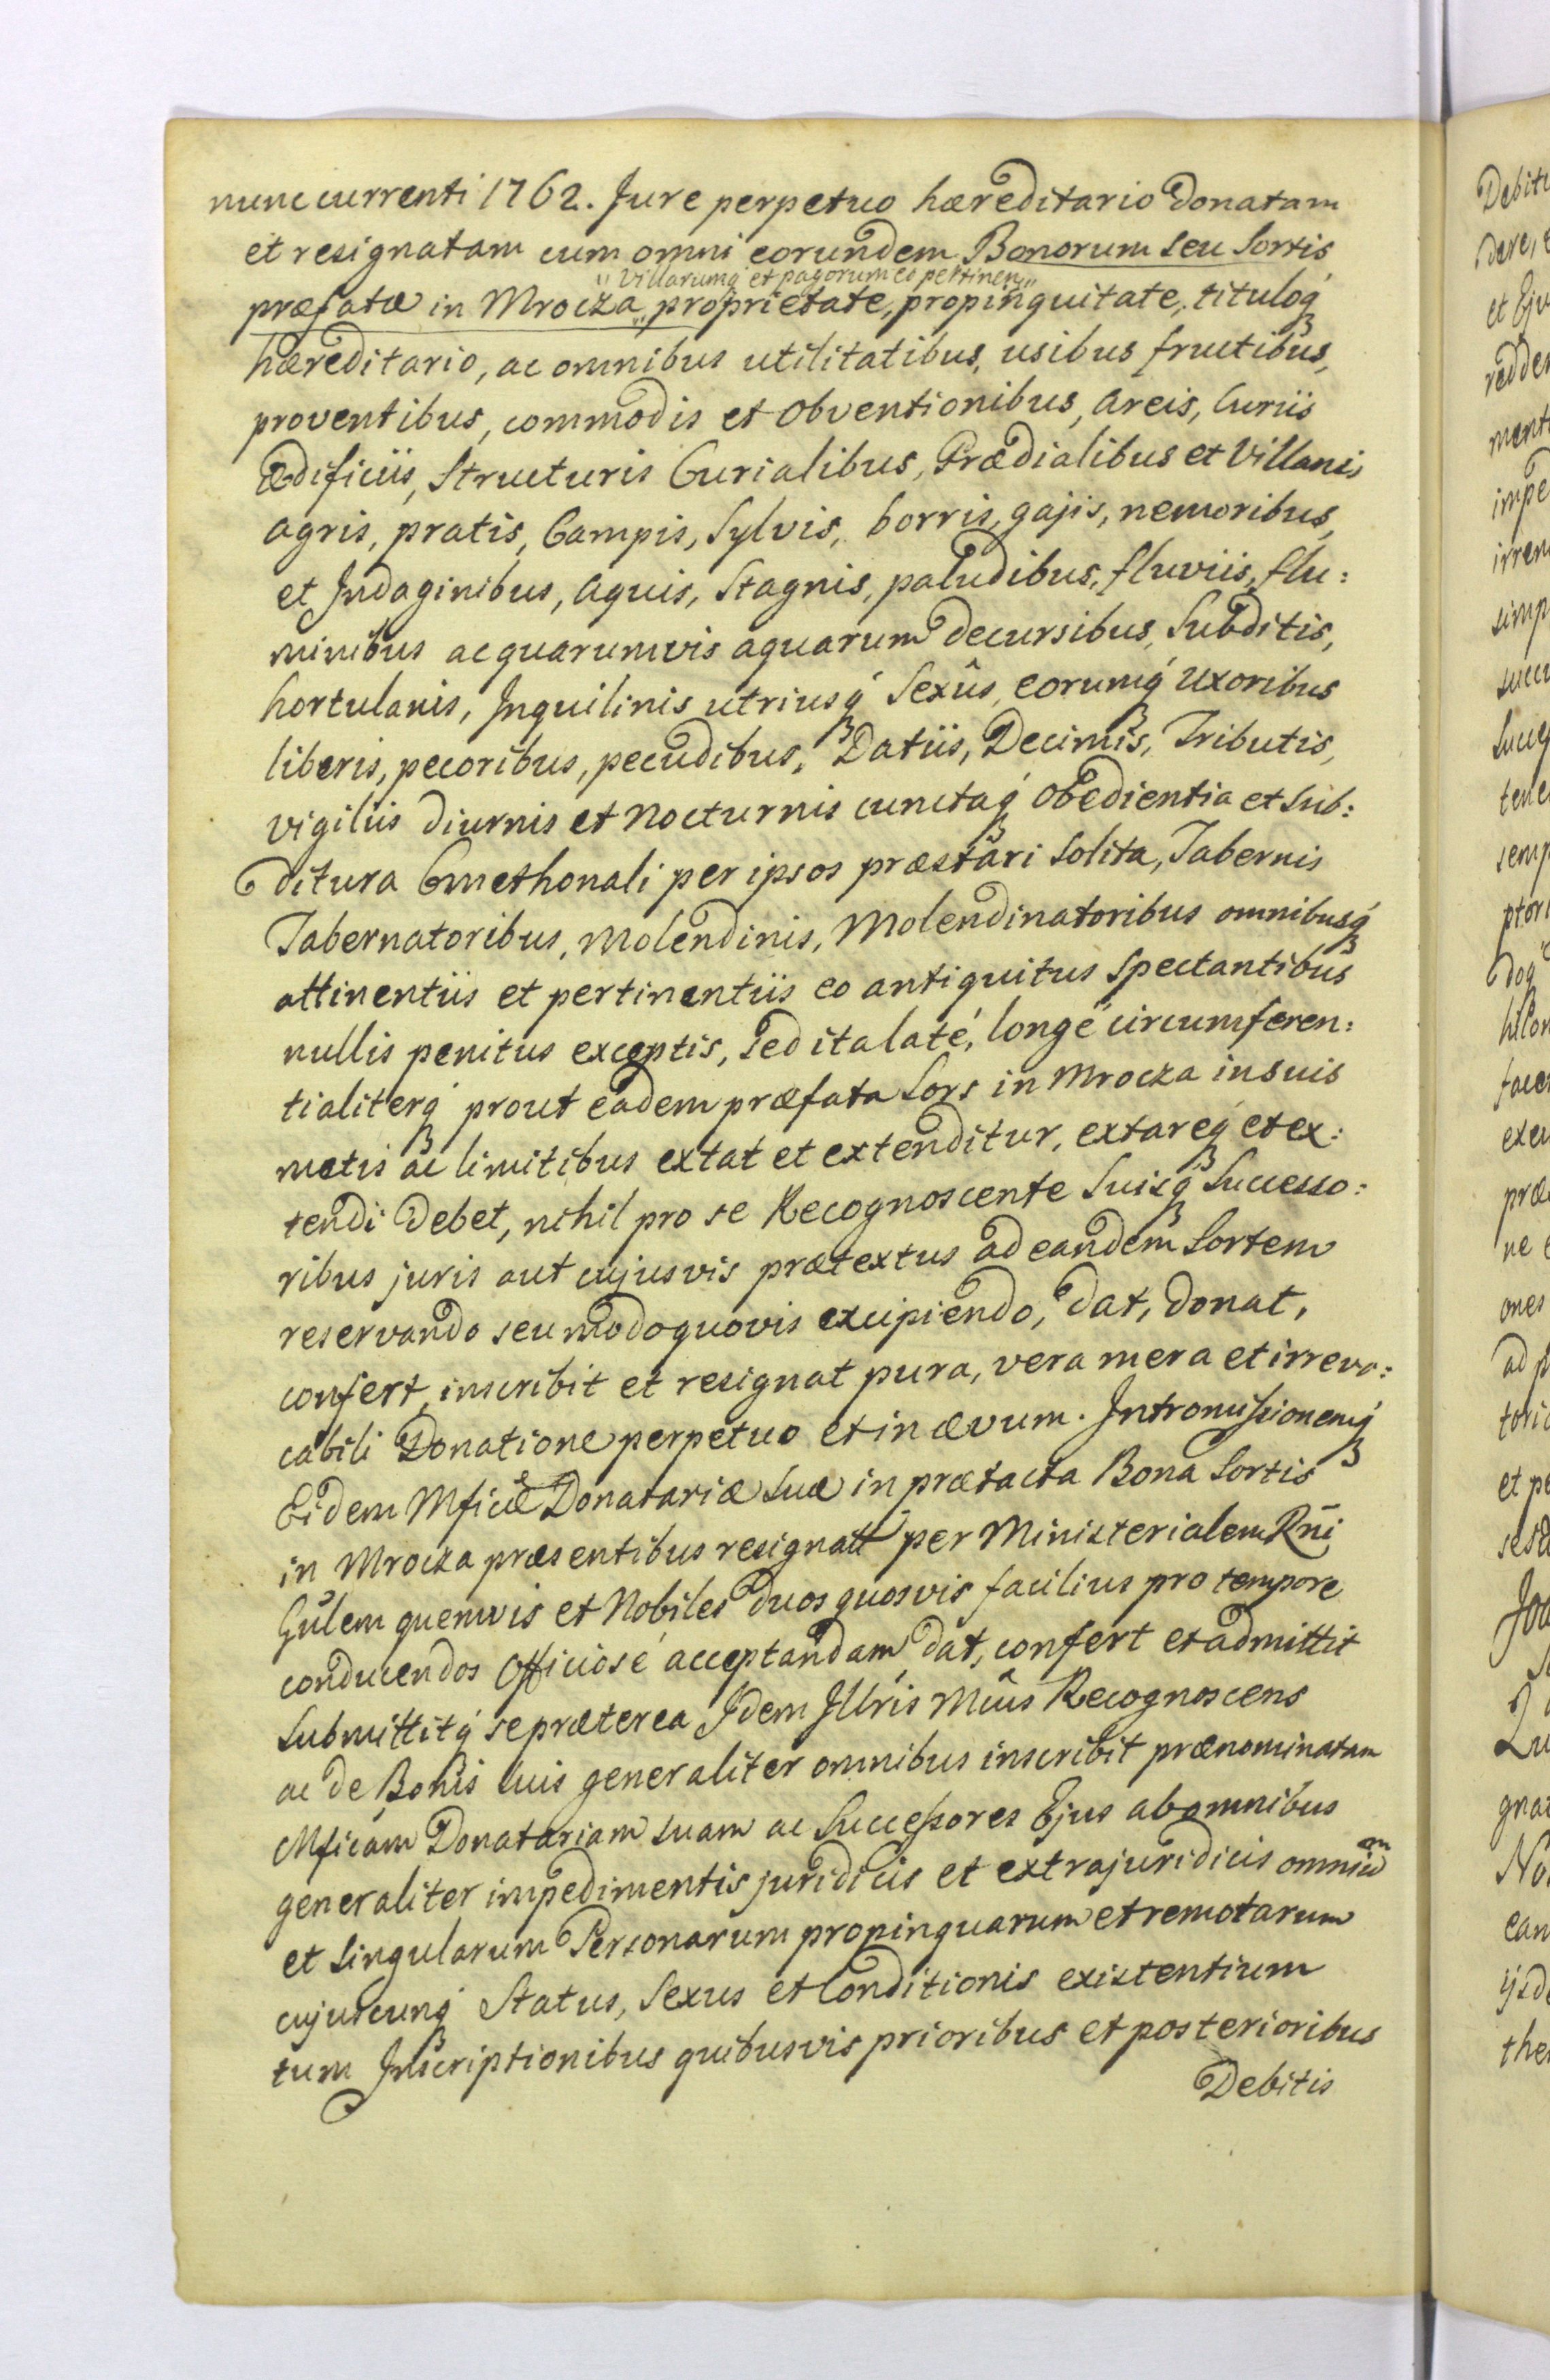 nunc currenti 1762. Jure perpetuo hæreditario Donatam
et resignatam cum omni eorundem Bonorum seu Sortis
"Villarumq́ et pagorum eo pertinen"
præfatæ in Mrocza proprietate, propinquitate, tituloq́ꝫ
hæreditario, ac omnibus utilitatibus, usibus fructibus,
proventibus, commodis et obventionibus, Areis, Curiis
Ædificiis, Structuris Curialibus, Prædialibus et Villanis
Agris, pratis, Campis, Sylvis, borris, gajis, nemoribus,
et Indaginibus, Aquis, Stagnis, paludibus, fluviis, flu:
minibus ac quarumvis aquarum decursibus, Subditis,
hortulanis, Inquilinis utriusq́ꝫ Sexûs, eorumq́ꝫ Uxoribus
liberis, pecoribus, pecudibus, Datiis, Decimis, Tributis,
vigiliis diurnis et Nocturnis cunctaq́ꝫ obedientia et Sub:
ditura Cmethonali per ipsos præstari Solita, Tabernis
Tabernatoribus, Molendinis, Molendinatoribus omnibusq́ꝫ
attinentiis et pertinentiis eo antiquitus Spectantibus
nullis penitus exceptis, sed ita laté, longé circumferen:
tialiterq́ꝫ prout eadem præfata Sors in Mrocza in suis
metis ac limitibus extat et extenditur, extareq́ꝫ et ex:
tendi Debet, nihil pro se Recognoscente Suisq́ꝫ Successo:
ribus juris aut cujusvis prætextus ad eandem Sortem
reservando seu modo quovis excipiendo, dat, donat,
confert, inscribit et resignat pura, vera mera et irrevo:
cabili Donatione perpetuo et in ævum. Intromissionemq́ꝫ
Eidem Mficæ Donatariæ Suæ in prætacta Bona Sortis
in Mrocza præsentibus resignatt per Ministerialem Rñi
Gñlem quemvis et Nobiles duos quosvis facilius pro tempore
conducendos officiosé acceptandam dat, confert et admittit
Submittitq́ se præterea Idem Illris Mcûs Recognoscens
ac de Bonis suis generaliter omnibus inscribit prænominatam
Mficam Donatariam suam ac Successores Ejus ab omnibus
generaliter impedimentis juridicis et extrajuridicis omnium
et Singularum Personarum propinquarum et remotarum
cujuscunq́ꝫ Status, Sexus et Conditionis existentium
tum Inscriptionibus quibusvis prioribus et posterioribus
Debitis